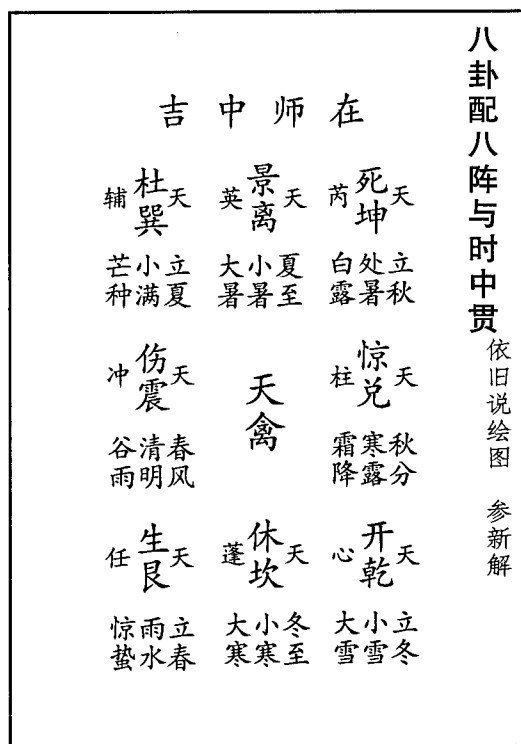 八卦配八阵与时中贯
依旧说绘图 参新解
在师中吉
天
死坤
芮
立秋
处暑
白露
天
景离
英
夏至
小暑
大暑
天
杜巽
辅
立夏
小满
芒种
天
惊兑
柱
秋分
寒露
霜降
天禽
天
伤震
冲
春风
清明
谷雨
天
开乾
心
立冬
小雪
大雪
天
休坎
蓬
冬至
小寒
大寒
天
生艮
任
立春
雨水
惊蛰